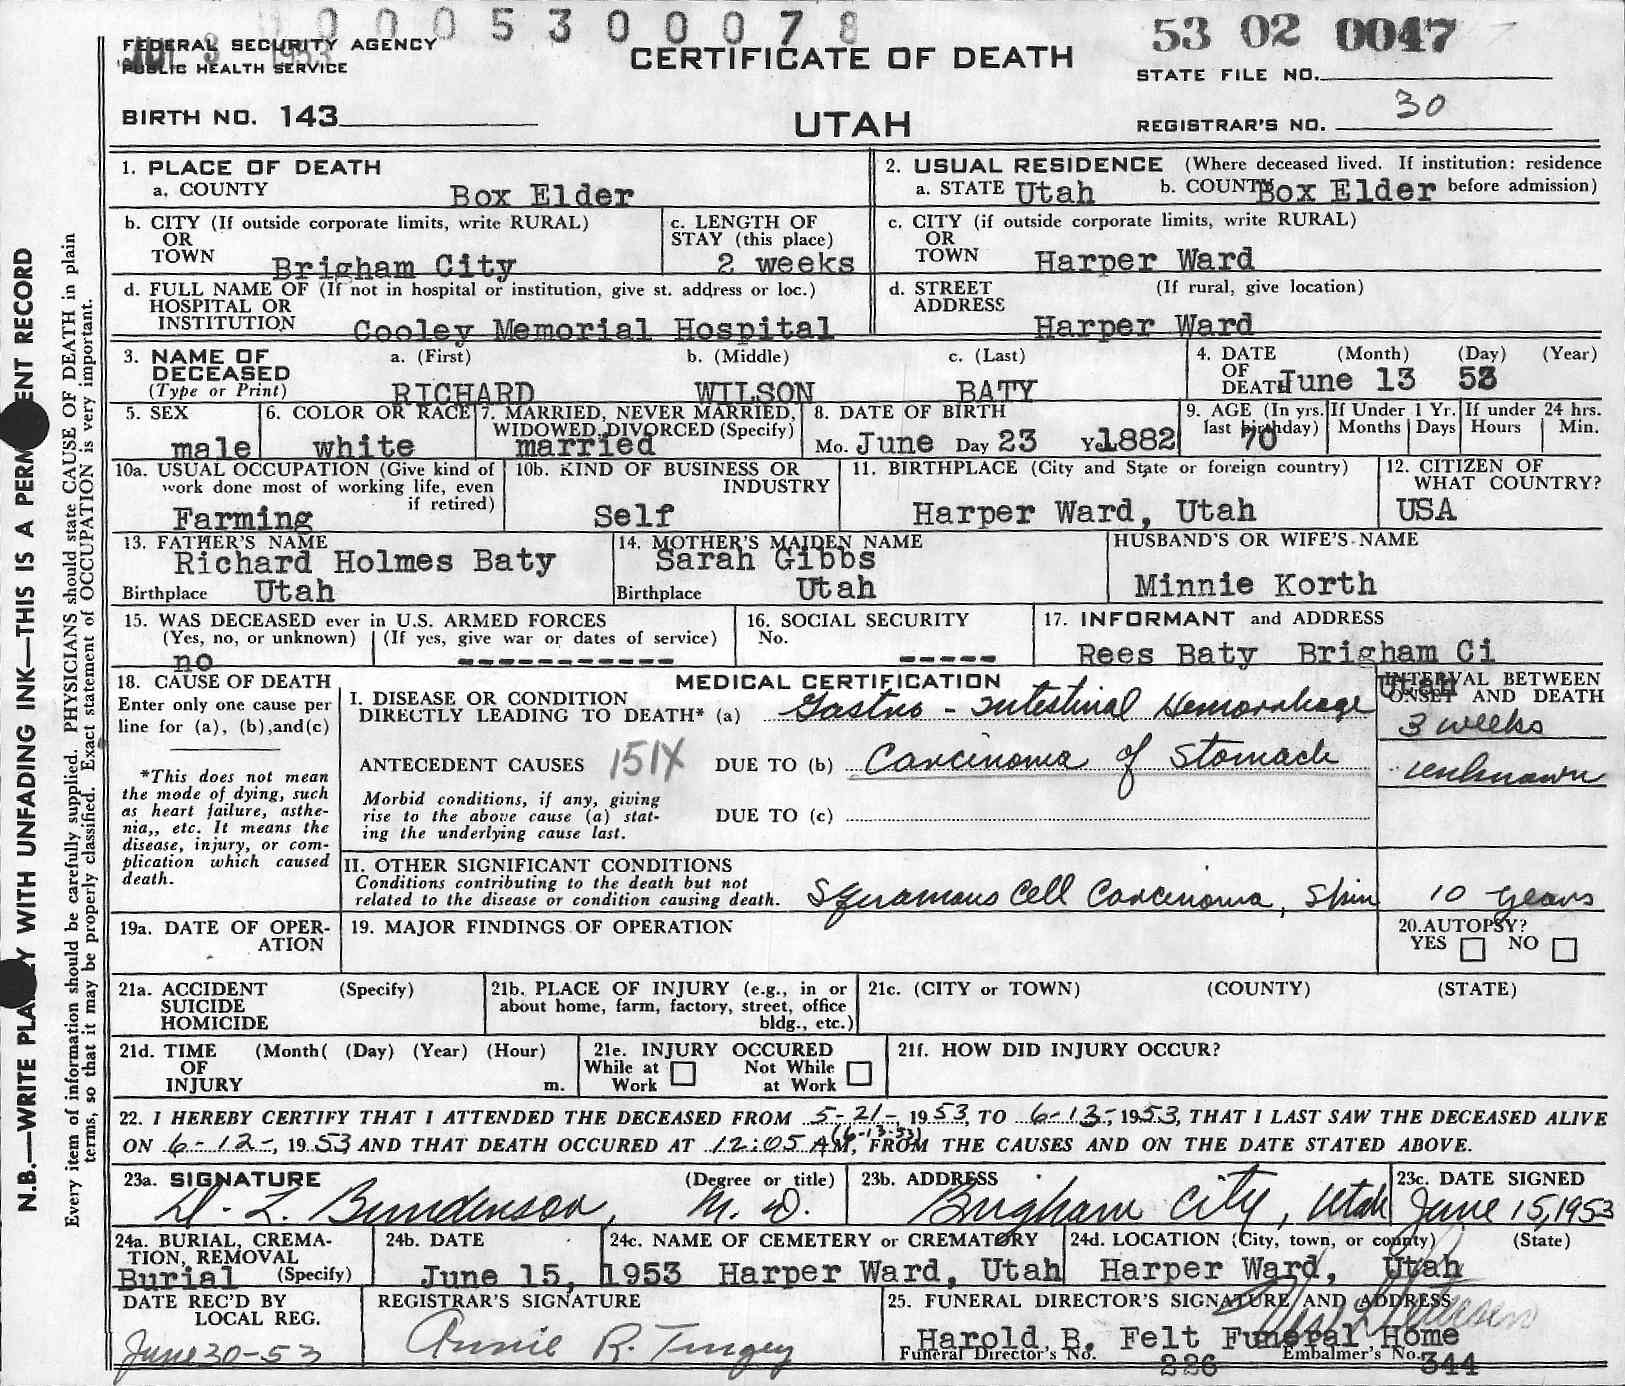 0 0 0 5 3 0 0 0 7 8
53 02 0047
FEDERAL SECURITY AGENCY
PUBLIC HEALTH SERVICE
3 1953
CERTIFICATE OF DEATH
STATE FILE NO.
BIRTH NO. 143
UTAH
REGISTRAR'S NO. 30
N.B.—WRITE PLAINLY WITH UNFADING INK—THIS IS A PERMANENT RECORD
Every item of information should be carefully supplied. PHYSICIANS should state CAUSE OF DEATH in plain
terms, so that it may be properly classified. Exact statement of OCCUPATION is very important.
1. PLACE OF DEATH
a. COUNTY Box Elder
2. USUAL RESIDENCE (Where deceased lived. If institution: residence
a. STATE Utah b. COUNTY Box Elder before admission)
b. CITY (If outside corporate limits, write RURAL)
OR
TOWN Brigham City
c. LENGTH OF
STAY (this place)
2 weeks
c. CITY (if outside corporate limits, write RURAL)
OR
TOWN Harper Ward
d. FULL NAME OF (If not in hospital or institution, give st. address or loc.)
HOSPITAL OR
INSTITUTION Cooley Memorial Hospital
d. STREET (If rural, give location)
ADDRESS
Harper Ward
3. NAME OF
DECEASED
(Type or Print)
a. (First) b. (Middle) c. (Last)
RICHARD WILSON BATY
4. DATE (Month) (Day) (Year)
OF
DEATH June 13 53
5. SEX
male
6. COLOR OR RACE
white
7. MARRIED, NEVER MARRIED,
WIDOWED, DIVORCED (Specify)
married
8. DATE OF BIRTH
Mo. June Day 23 Yr. 1882
9. AGE (In yrs.
last birthday)
70
If Under 1 Yr.
Months Days
If under 24 hrs.
Hours Min.
10a. USUAL OCCUPATION (Give kind of
work done most of working life, even
if retired)
Farming
10b. KIND OF BUSINESS OR
INDUSTRY
Self
11. BIRTHPLACE (City and State or foreign country)
Harper Ward, Utah
12. CITIZEN OF
WHAT COUNTRY?
USA
13. FATHER'S NAME
Richard Holmes Baty
Birthplace Utah
14. MOTHER'S MAIDEN NAME
Sarah Gibbs
Birthplace Utah
HUSBAND'S OR WIFE'S NAME
Minnie Korth
15. WAS DECEASED ever in U.S. ARMED FORCES
(Yes, no, or unknown) (If yes, give war or dates of service)
no ------------
16. SOCIAL SECURITY
No.
-----
17. INFORMANT and ADDRESS
Rees Baty Brigham Ci
Utah
18. CAUSE OF DEATH
Enter only one cause per
line for (a), (b),and(c)
*This does not mean
the mode of dying, such
as heart failure, asthe-
nia,, etc. It means the
disease, injury, or com-
plication which caused
death.
MEDICAL CERTIFICATION
INTERVAL BETWEEN
ONSET AND DEATH
I. DISEASE OR CONDITION
DIRECTLY LEADING TO DEATH* (a) Gastro - Intestinal Hemorrhage
3 weeks
ANTECEDENT CAUSES 151X DUE TO (b) Carcinoma of Stomach
unknown
Morbid conditions, if any, giving
rise to the above cause (a) stat-
ing the underlying cause last.
DUE TO (c)
II. OTHER SIGNIFICANT CONDITIONS
Conditions contributing to the death but not
related to the disease or condition causing death. Squamous Cell Carcinoma, Skin
10 years
19a. DATE OF OPER-
ATION
19. MAJOR FINDINGS OF OPERATION
20.AUTOPSY?
YES NO
21a. ACCIDENT (Specify)
SUICIDE
HOMICIDE
21b. PLACE OF INJURY (e.g., in or
about home, farm, factory, street, office
bldg., etc.)
21c. (CITY or TOWN) (COUNTY) (STATE)
21d. TIME (Month( (Day) (Year) (Hour)
OF
INJURY m.
21e. INJURY OCCURED
While at Not While
Work at Work
21f. HOW DID INJURY OCCUR?
22. I HEREBY CERTIFY THAT I ATTENDED THE DECEASED FROM 5-21-, 1953, TO 6-13-, 1953, THAT I LAST SAW THE DECEASED ALIVE
ON 6-12-, 1953 AND THAT DEATH OCCURED AT 12:05 AM, (6-13-53) FROM THE CAUSES AND ON THE DATE STATED ABOVE.
23a. SIGNATURE (Degree or title)
D. L. Bunderson, M. D.
23b. ADDRESS
Brigham City, Utah
23c. DATE SIGNED
June 15, 1953
24a. BURIAL, CREMA-
TION, REMOVAL
Burial (Specify)
24b. DATE
June 15, 1953
24c. NAME OF CEMETERY or CREMATORY
Harper Ward, Utah
24d. LOCATION (City, town, or county) (State)
Harper Ward, Utah
DATE REC'D BY
LOCAL REG.
June 30-53
REGISTRAR'S SIGNATURE
Annie R. Tingey
25. FUNERAL DIRECTOR'S SIGNATURE AND ADDRESS
Harold B. Felt Funeral Home
Funeral Director's No. 226 Embalmer's No. 344